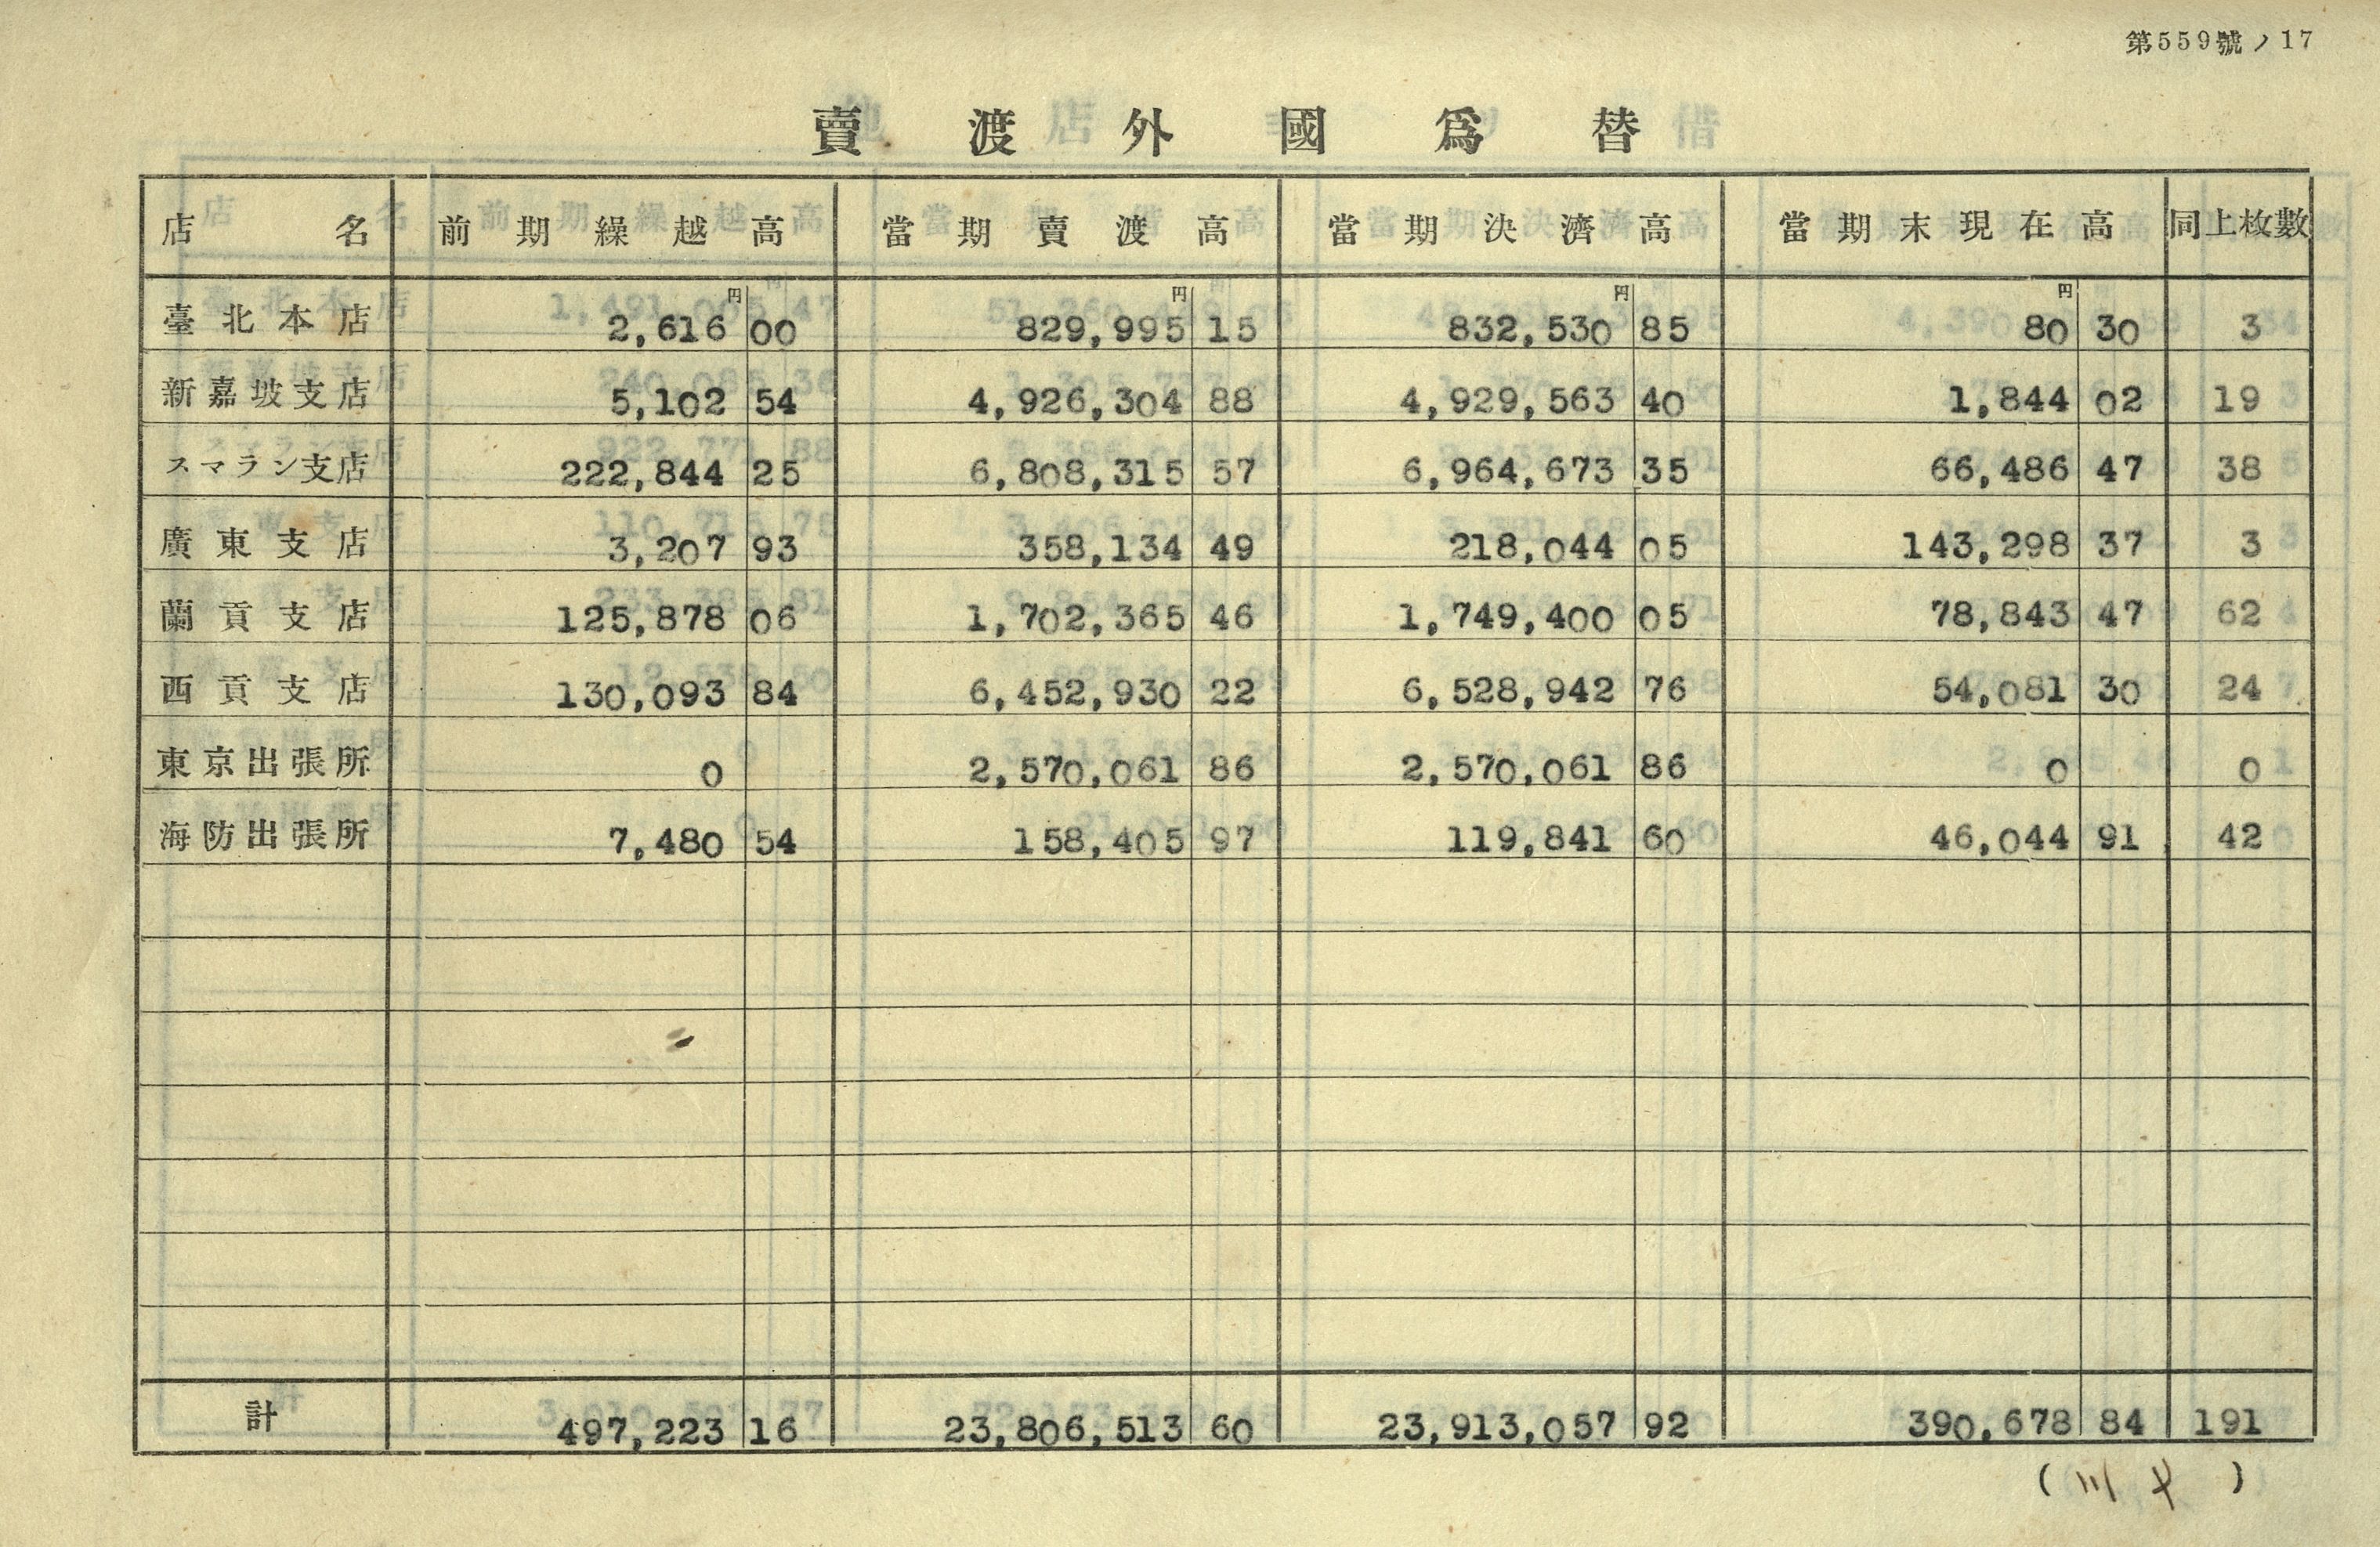 第559號ノ17
賣渡外國爲替
店名 前期繰越高 當期賣渡高 當期決濟高 當期末現在高 同上枚數
円 円 円 円
臺北本店 2,616 00 829,995 15 832,530 85 80 30 3
新嘉坡支店 5,102 54 4,926,304 88 4,929,563 40 1,844 02 19
スマラン支店 222,844 25 6,808,315 57 6,964,673 35 66,486 47 38
廣東支店 3,207 93 358,134 49 218,044 05 143,298 37 3
蘭貢支店 125,878 06 1,702,365 46 1,749,400 05 78,843 47 62
西貢支店 130,093 84 6,452,930 22 6,528,942 76 54,081 30 24
東京出張所 0 2,570,061 86 2,570,061 86 0 0
海防出張所 7,480 54 158,405 97 119,841 60 46,044 91 42
計 497,223 16 23,806,513 60 23,913,057 92 390,678 84 191